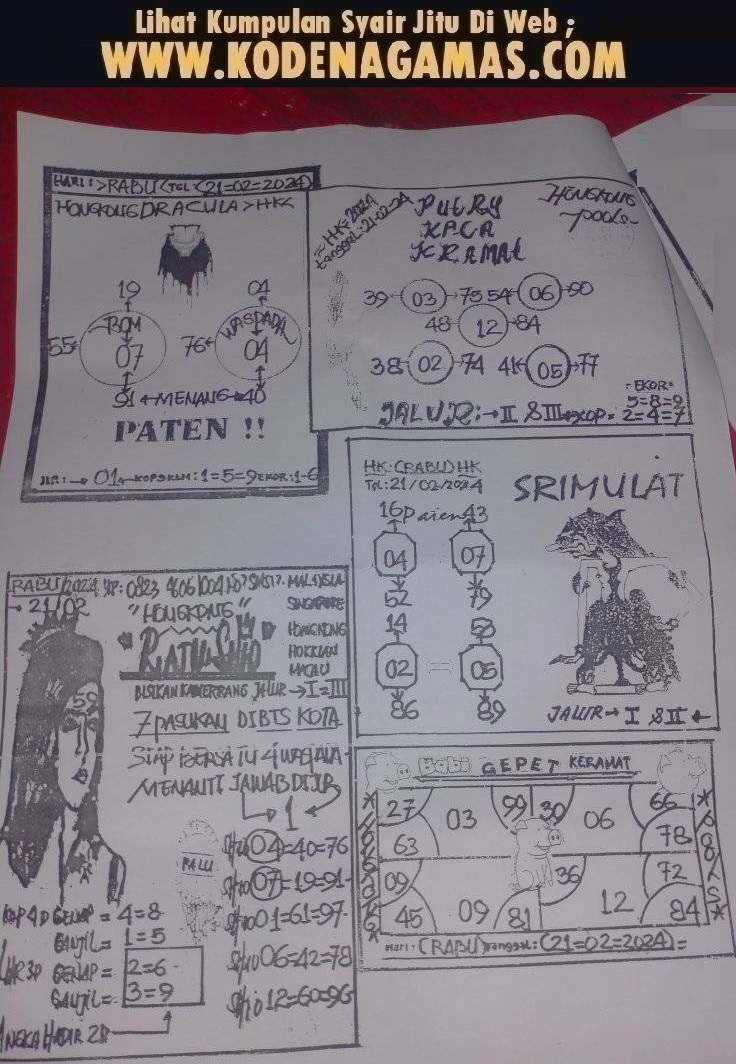 Lihat Kumpulan Syair Jitu Di Web ;
WWW.KODENAGAMAS.COM
HARI:>RABU<TGL:(21=02=2024)
HONGKONG DRACULA>HK<
19 04
BOM WASPADA
55 07 76 04
91 MENANG 40
PATEN !!
JLR:→ 01 KOP 1=5=9 EKOR:1-6
=HK=2024
tanggal:21-02-24
PUTRY
KRAMAT
HONGKONG
Pools
39 03 75 54 06 90
48 12 84
38 02 74 41 05 77
=EKOR=
5=8=9
JALUR:→II & III KOP= 2=4=7
HK:(RABU)HK
TGL:21/02/2024
SRIMULAT
16 Paten 43
04 07
52 79
14 53
02 = 05
86 89
JALUR→ I & II ←
RABU/2024
→ 21/02
MALAYSIA
SINGAPORE
HONGKONG
MACAU
"HONGKONG"
JALUR→I=III
59
7 PASUKAN DIBTS KOTA
SIAP BERSATU 4
MENANTI JAWAB
1
PALU
Shio 04=40=76
Shio 07=19=91
Shio 01=61=97
Shio 06=42=78
Shio 12=60=96
KOP 4D GENAP = 4=8
GANJIL = 1=5
GENAP = 2=6
GANJIL = 3=9
ANGKA HADIR 2D
Babi GEPET KERAMAT
27 03 99 30 06 66
63 78
09 36 72
45 09 81 12 84
Hari:(RABU) Tanggal:(21=02=2024)=